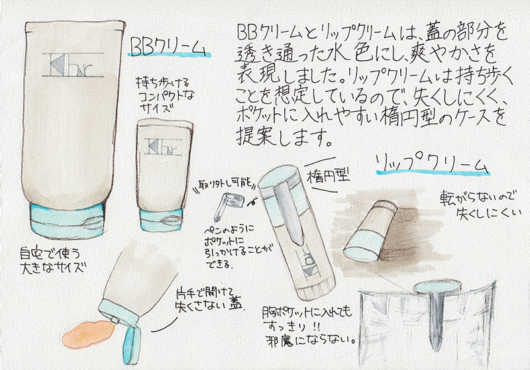 BBクリームとリップクリームは、蓋の部分を
透き通った水色にし、爽やかさを
表現しました。リップクリームは持ち歩く
ことを想定しているので、失くしにくく、
ポケットに入れやすい楕円型のケースを
提案します。
BBクリーム
持ち歩ける
コンパクトな
サイズ
自宅で使う
大きなサイズ
片手で開けて
失くさない蓋
リップクリーム
取り外し可能
楕円型
ペンのように
ポケットに
引っかけることが
できる。
転がらないので
失くしにくい
胸ポケットに入れても
すっきり!!
邪魔にならない。